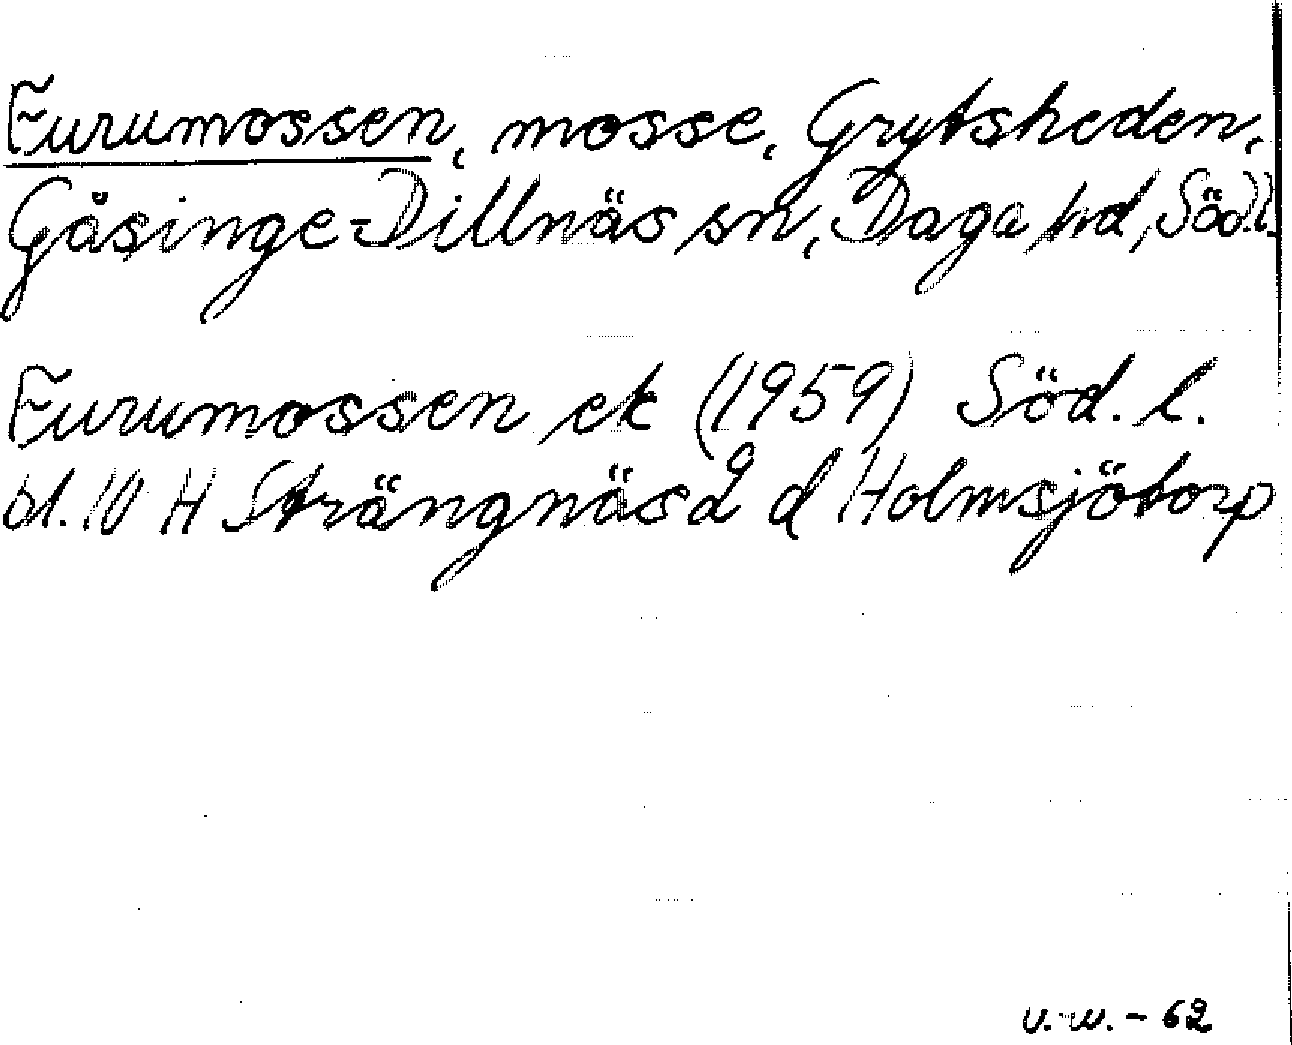 Furumossen, mosse, Grytsheden,
Gåsinge-Dillnäs sn, Daga hd, Söd.l.
Furumossen ek (1959) Söd. l.
bl. 10 H Strängnäs 2 d Holmsjötorp
U.W. - 62